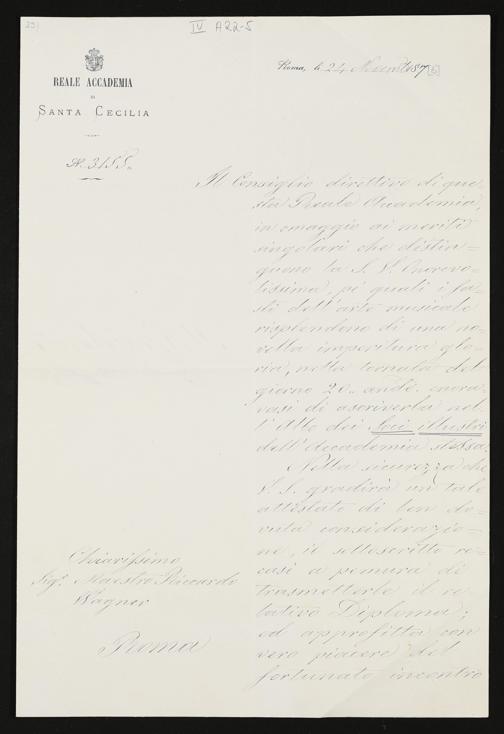 291
IV A22-5
REALE ACCADEMIA
DI
SANTA CECILIA
N. 3155.
Roma, li 24 Novembre 187[6]
Il Consiglio direttivo di que=
sta Reale Accademia,
in omaggio ai meriti
singolari che distin=
guono la S. V. Onorevo=
lissima, pe' quali i fa=
sti dell'arte musicale
risplendono di una no=
vella imperitura glo=
ria, nella tornata del
giorno 20. andte. onora=
vasi di ascriverla nel=
l'Albo dei Soci illustri
dell'Accademia stessa.
Nella sicurezza che
V. S. gradirà un tale
attestato di ben do=
vuta considerazio=
ne, il sottoscritto re=
casi a premura di
trasmetterle il re=
lativo Diploma;
ed approfitta con
vero piacere del
fortunato incontro
Chiarissimo
Sigr. Maestro Riccardo
Wagner
Roma